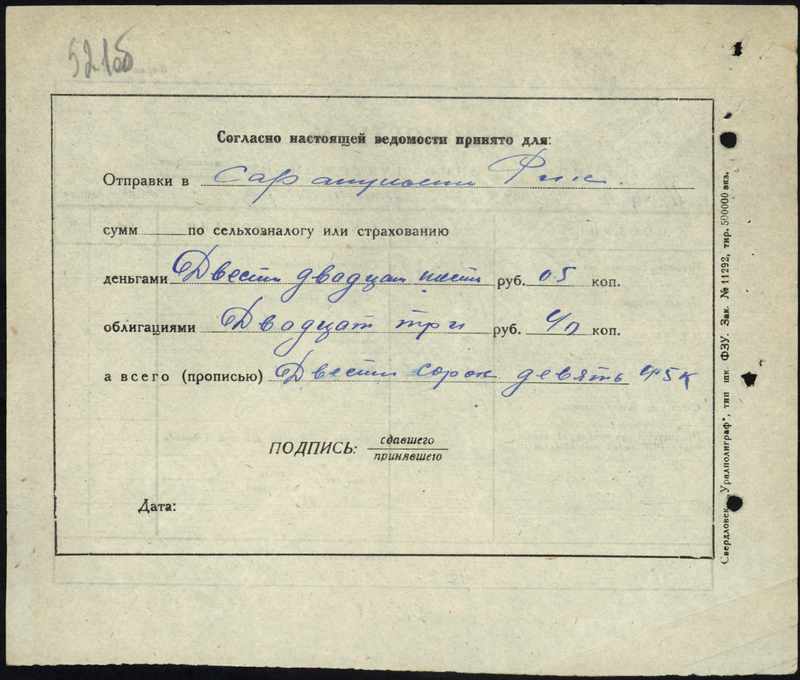 521об
Согласно настоящей ведомости принято для:
Отправки в
сумм по сельхозналогу или страхованию
деньгами Двести двадцат шесть руб. 05 коп.
облигациями Двадцат три руб. 40 коп.
а всего (прописью) Двести сорок девять 45 к
ПОДПИСЬ: сдавшего
принявшего
Дата:
Свердловск, „Уралполиграф", тип шк ФЗУ. Зак. № 11292, тир. 500000 экз.